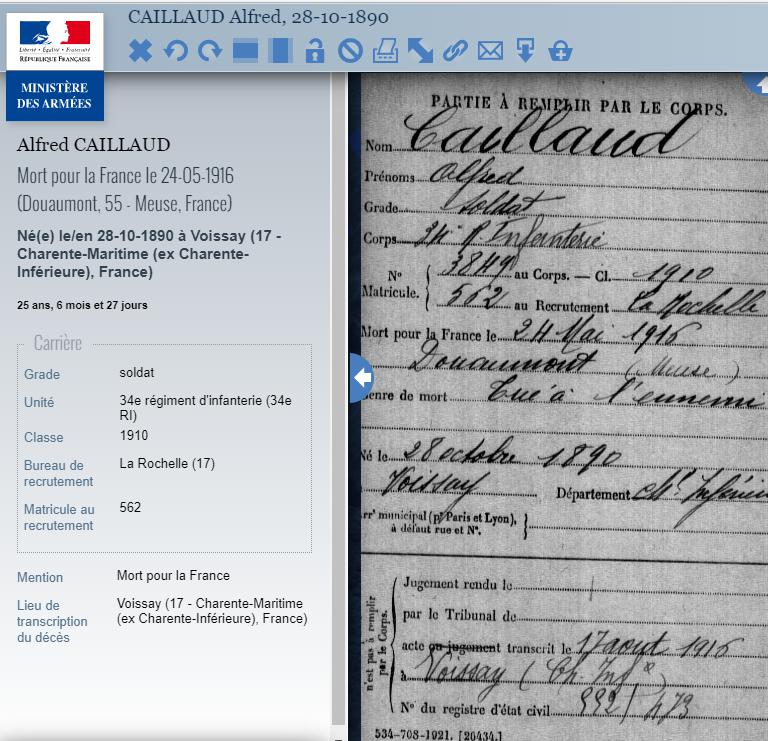 CAILLAUD Alfred, 28-10-1890
Liberté • Égalité • Fraternité
RÉPUBLIQUE FRANÇAISE
MINISTÈRE
DES ARMÉES
Alfred CAILLAUD
Mort pour la France le 24-05-1916
(Douaumont, 55 - Meuse, France)
Né(e) le/en 28-10-1890 à Voissay (17 -
Charente-Maritime (ex Charente-
Inférieure), France)
25 ans, 6 mois et 27 jours
Carrière
Grade soldat
Unité 34e régiment d'infanterie (34e
RI)
Classe 1910
Bureau de
recrutement La Rochelle (17)
Matricule au
recrutement 562
Mention Mort pour la France
Lieu de
transcription
du décès Voissay (17 - Charente-Maritime
(ex Charente-Inférieure), France)
PARTIE À REMPLIR PAR LE CORPS.
Nom Caillaud
Prénoms Alfred
Grade soldat
Corps 34e R Infanterie
N° 3849 au Corps. — Cl. 1910
Matricule. 562 au Recrutement La Rochelle
Mort pour la France le 24 Mai 1916
Douaumont (Meuse)
Genre de mort Tué à l'ennemi
Né le 28 octobre 1890
Voissay Département Chte Inférieure
arrt municipal (pr Paris et Lyon),
à défaut rue et N°.
Jugement rendu le
par le Tribunal de
acte ou jugement transcrit le 17 août 1916
à Voissay (Ch. Infre)
N° du registre d'état civil 992/473
n'est pas à remplir
par le Corps.
534-708-1921. [20434.]